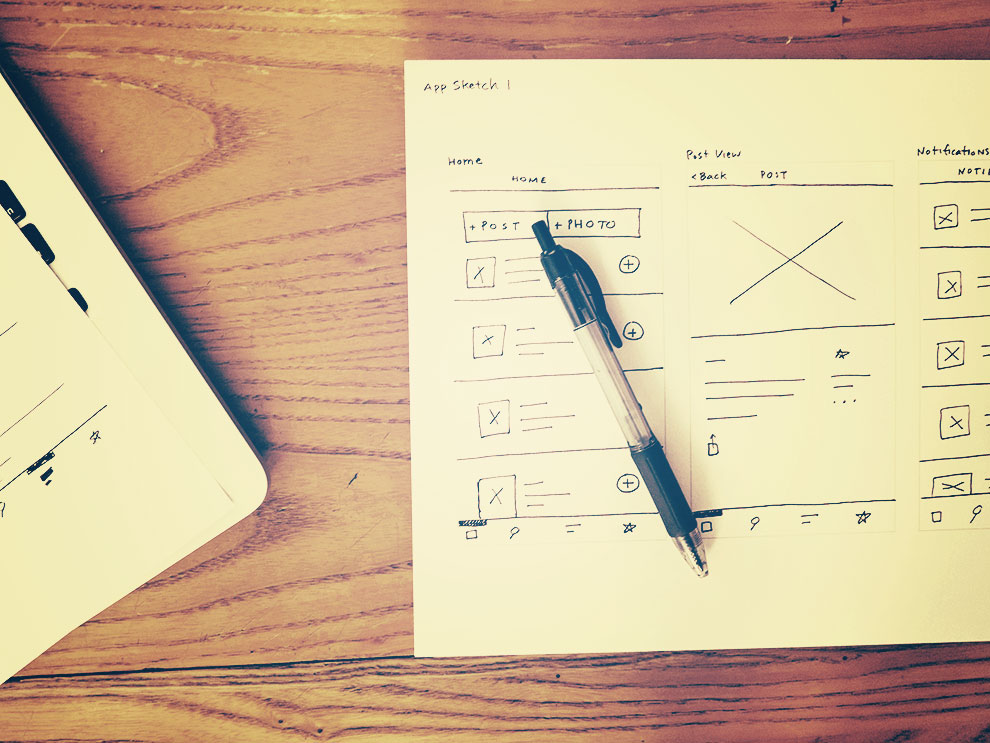 App Sketch 1
Home
HOME
+ POST
+ PHOTO
Post View
< Back POST
Notifications
NOTI